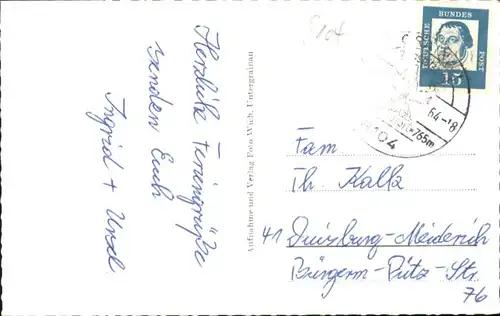 8104
Herzliche Feriengrüße
senden Euch
Ingrid + Ursel
Aufnahme und Verlag Foto Wich, Untergrainau
DEUTSCHE
BUNDES
POST
15
64-18
765m
8104
Fam
Th. Kalla
41 Duisburg-Meiderich
Bürgerm-Pütz-Str.
76